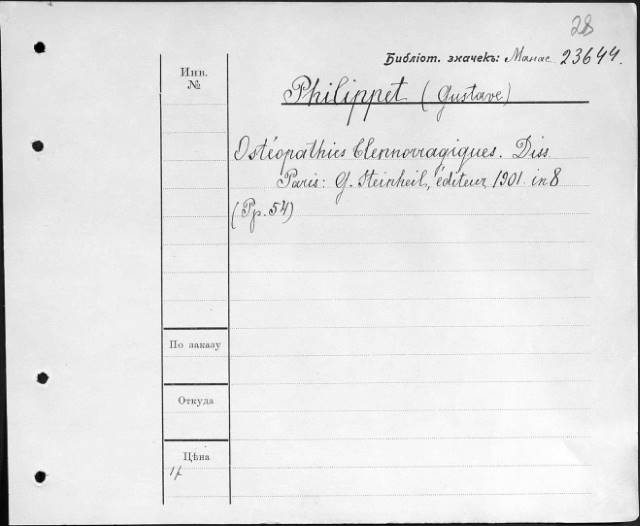 28
Библіот. значекъ: Манас 23644.
Инв.
№
Philippet (Gustave)
Ostéopathies blennorragiques. Diss.
Paris: G. Steinheil, éditeur 1901. in 8
(Pp. 54)
По заказу
Откуда
Цѣна